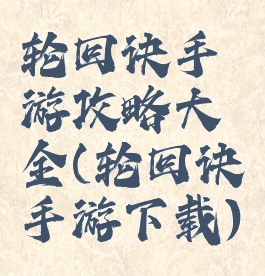 轮回诀手
游攻略大
全(轮回诀
手游下载)